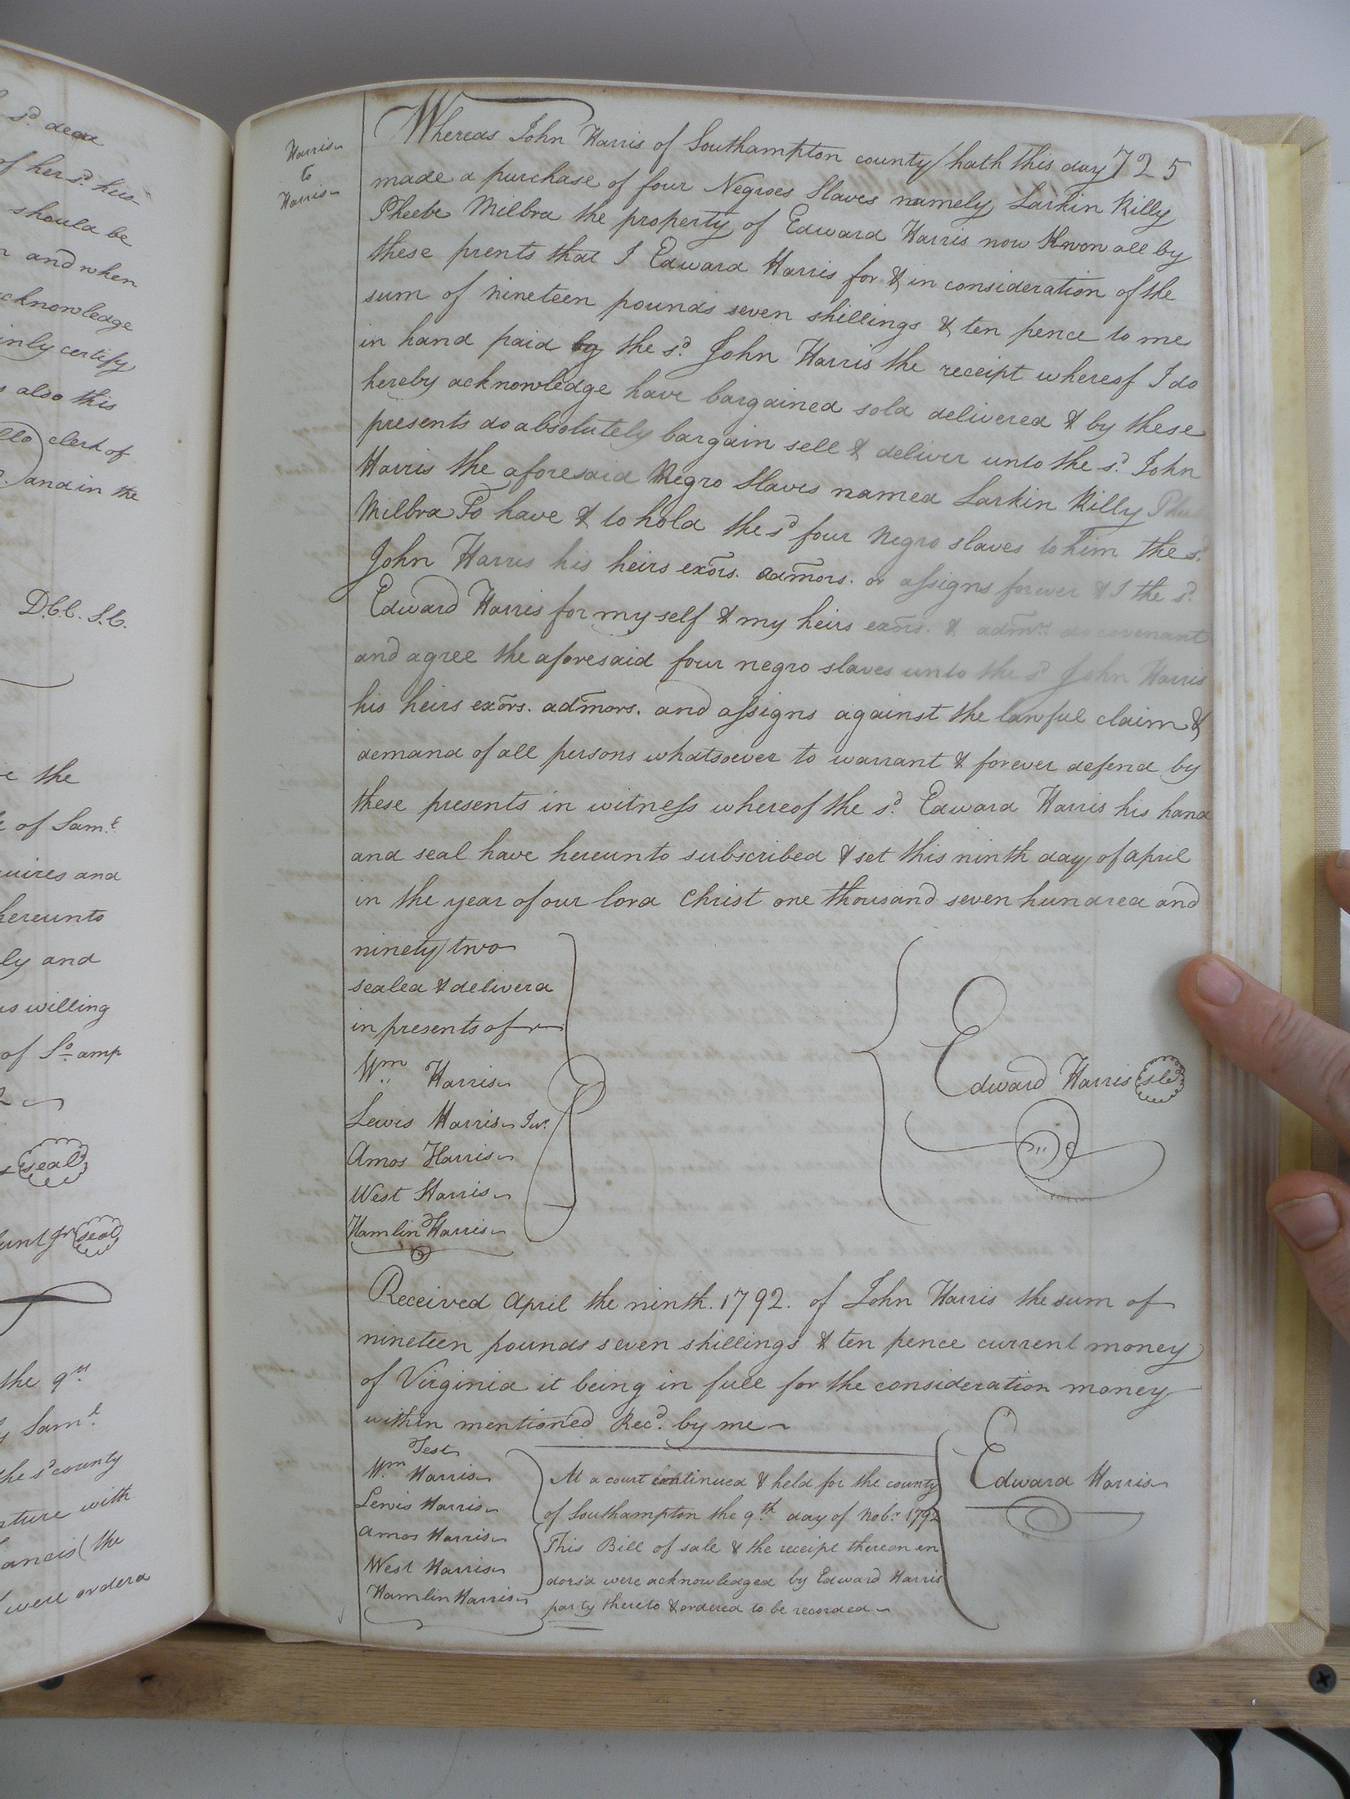 sd. dead
of her sd. hus-
should be
and when
acknowledge
certify
also this
clerk of
and in the
D.C.C. S.C.
the
of Saml.
and
hereunto
and
willing
of So. amp
seal
seal
the 9th
Saml.
the sd county
with
the
were orderd
Harris
to
Harris
725
Whereas John Harris of Southampton county hath this day
made a purchase of four Negroes Slaves namely Larkin Killy
Pheebe Milbra the property of Edward Harris now Knwon all by
these prents that I Edward Harris for & in consideration of the
sum of nineteen pounds seven shillings & ten pence to me
in hand paid by the sd. John Harris the receipt whereof I do
hereby acknowledge have bargained sold delivered & by these
presents do absolutely bargain sell & deliver unto the sd. John
Harris the aforesaid Negro Slaves named Larkin Killy
Milbra To have & to hold the sd four Negro slaves to him the sd.
John Harris his heirs exors. admors. or assigns forever & I the sd.
Edward Harris for my self & my heirs exors. & admrs. do covenant
and agree the aforesaid four negro slaves unto the sd John Harris
his heirs exors. admors. and assigns against the lawful claim &
demand of all persons whatsoever to warrant & forever defend by
these presents in witness whereof the sd. Edward Harris his hand
and seal have hereunto subscribed & set this ninth day of april
in the year of our lord Christ one thousand seven hundred and
ninety two
sealed & deliverd
in presents of
Wm Harris
Lewis Harris Junr.
Amos Harris
West Harris
Hamlin Harris
Edward Harris sl
Received april the ninth. 1792. of John Harris the sum of
nineteen pounds seven shillings & ten pence current money
of Virginia it being in full for the consideration money
within mentioned Recd. by me
Edward Harris
Test
Wm Harris
Lewis Harris
Amos Harris
West Harris
Hamlin Harris
At a court continued & held for the county
of Southampton the 9th day of Nobr 1792
This Bill of sale & the receipt thereon in
dorsd were acknowledged by Edward Harris
party thereto & ordered to be recorded